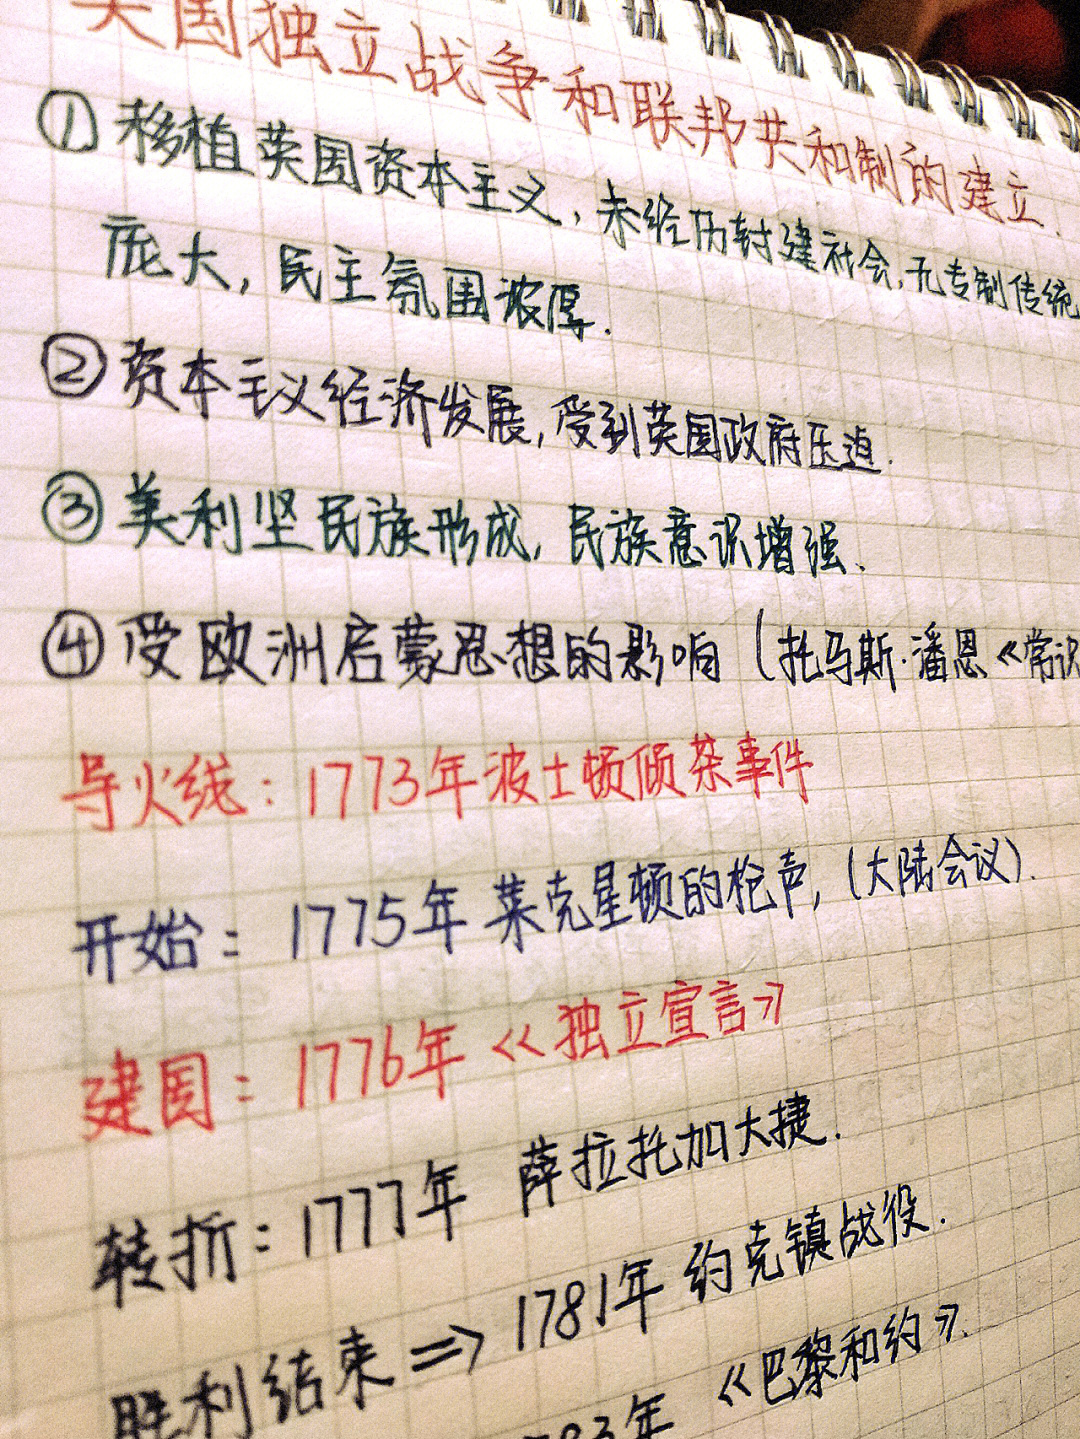 美国独立战争和联邦共和制的建立.
① 移植英国资本主义,未经历封建社会,无专制传统
庞大,民主氛围浓厚.
② 资本主义经济发展,受到英国政府压迫.
③ 美利坚民族形成,民族意识增强.
④ 受欧洲启蒙思想的影响(托马斯·潘恩《常识
导火线:1773年波士顿倾茶事件
开始:1775年莱克星顿的枪声,(大陆会议).
建国:1776年《独立宣言》
转折:1777年 萨拉托加大捷.
胜利结束⇒1781年 约克镇战役.
83年 《巴黎和约》.